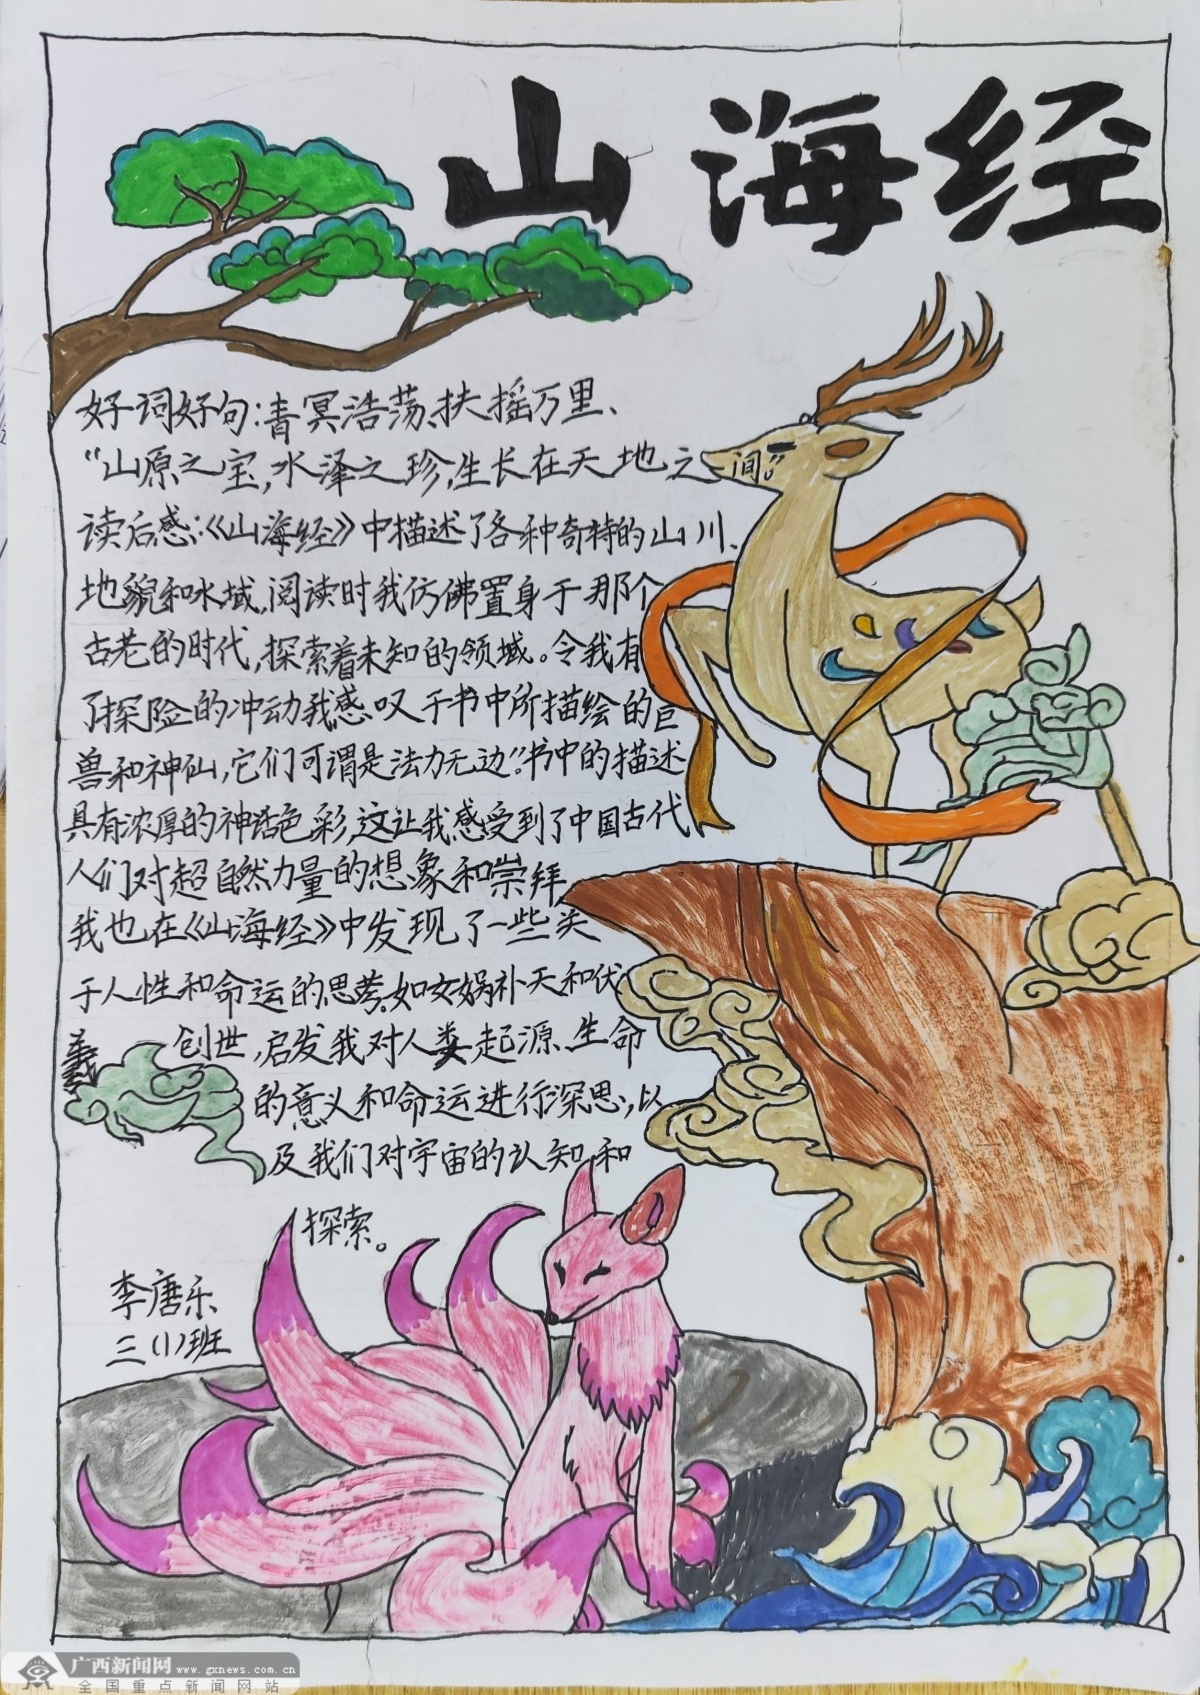 山海经
好词好句:青冥浩荡、扶摇万里、
“山原之宝,水泽之珍,生长在天地之间。”
读后感:《山海经》中描述了各种奇特的山川、
地貌和水域,阅读时我仿佛置身于那个
古老的时代,探索着未知的领域。令我有
了探险的冲动我感叹于书中所描绘的巨
兽和神仙,它们可谓是法力无边”。书中的描述
具有浓厚的神话色彩,这让我感受到了中国古代
人们对超自然力量的想象和崇拜
我也在《山海经》中发现了一些关
于人性和命运的思考,如女娲补天和伏
羲创世,启发我对人类起源、生命
的意义和命运进行深思,以
及我们对宇宙的认知和
探索。
李唐乐
三(1)班
广西新闻网 www.gxnews.com.cn
全国重点新闻网站